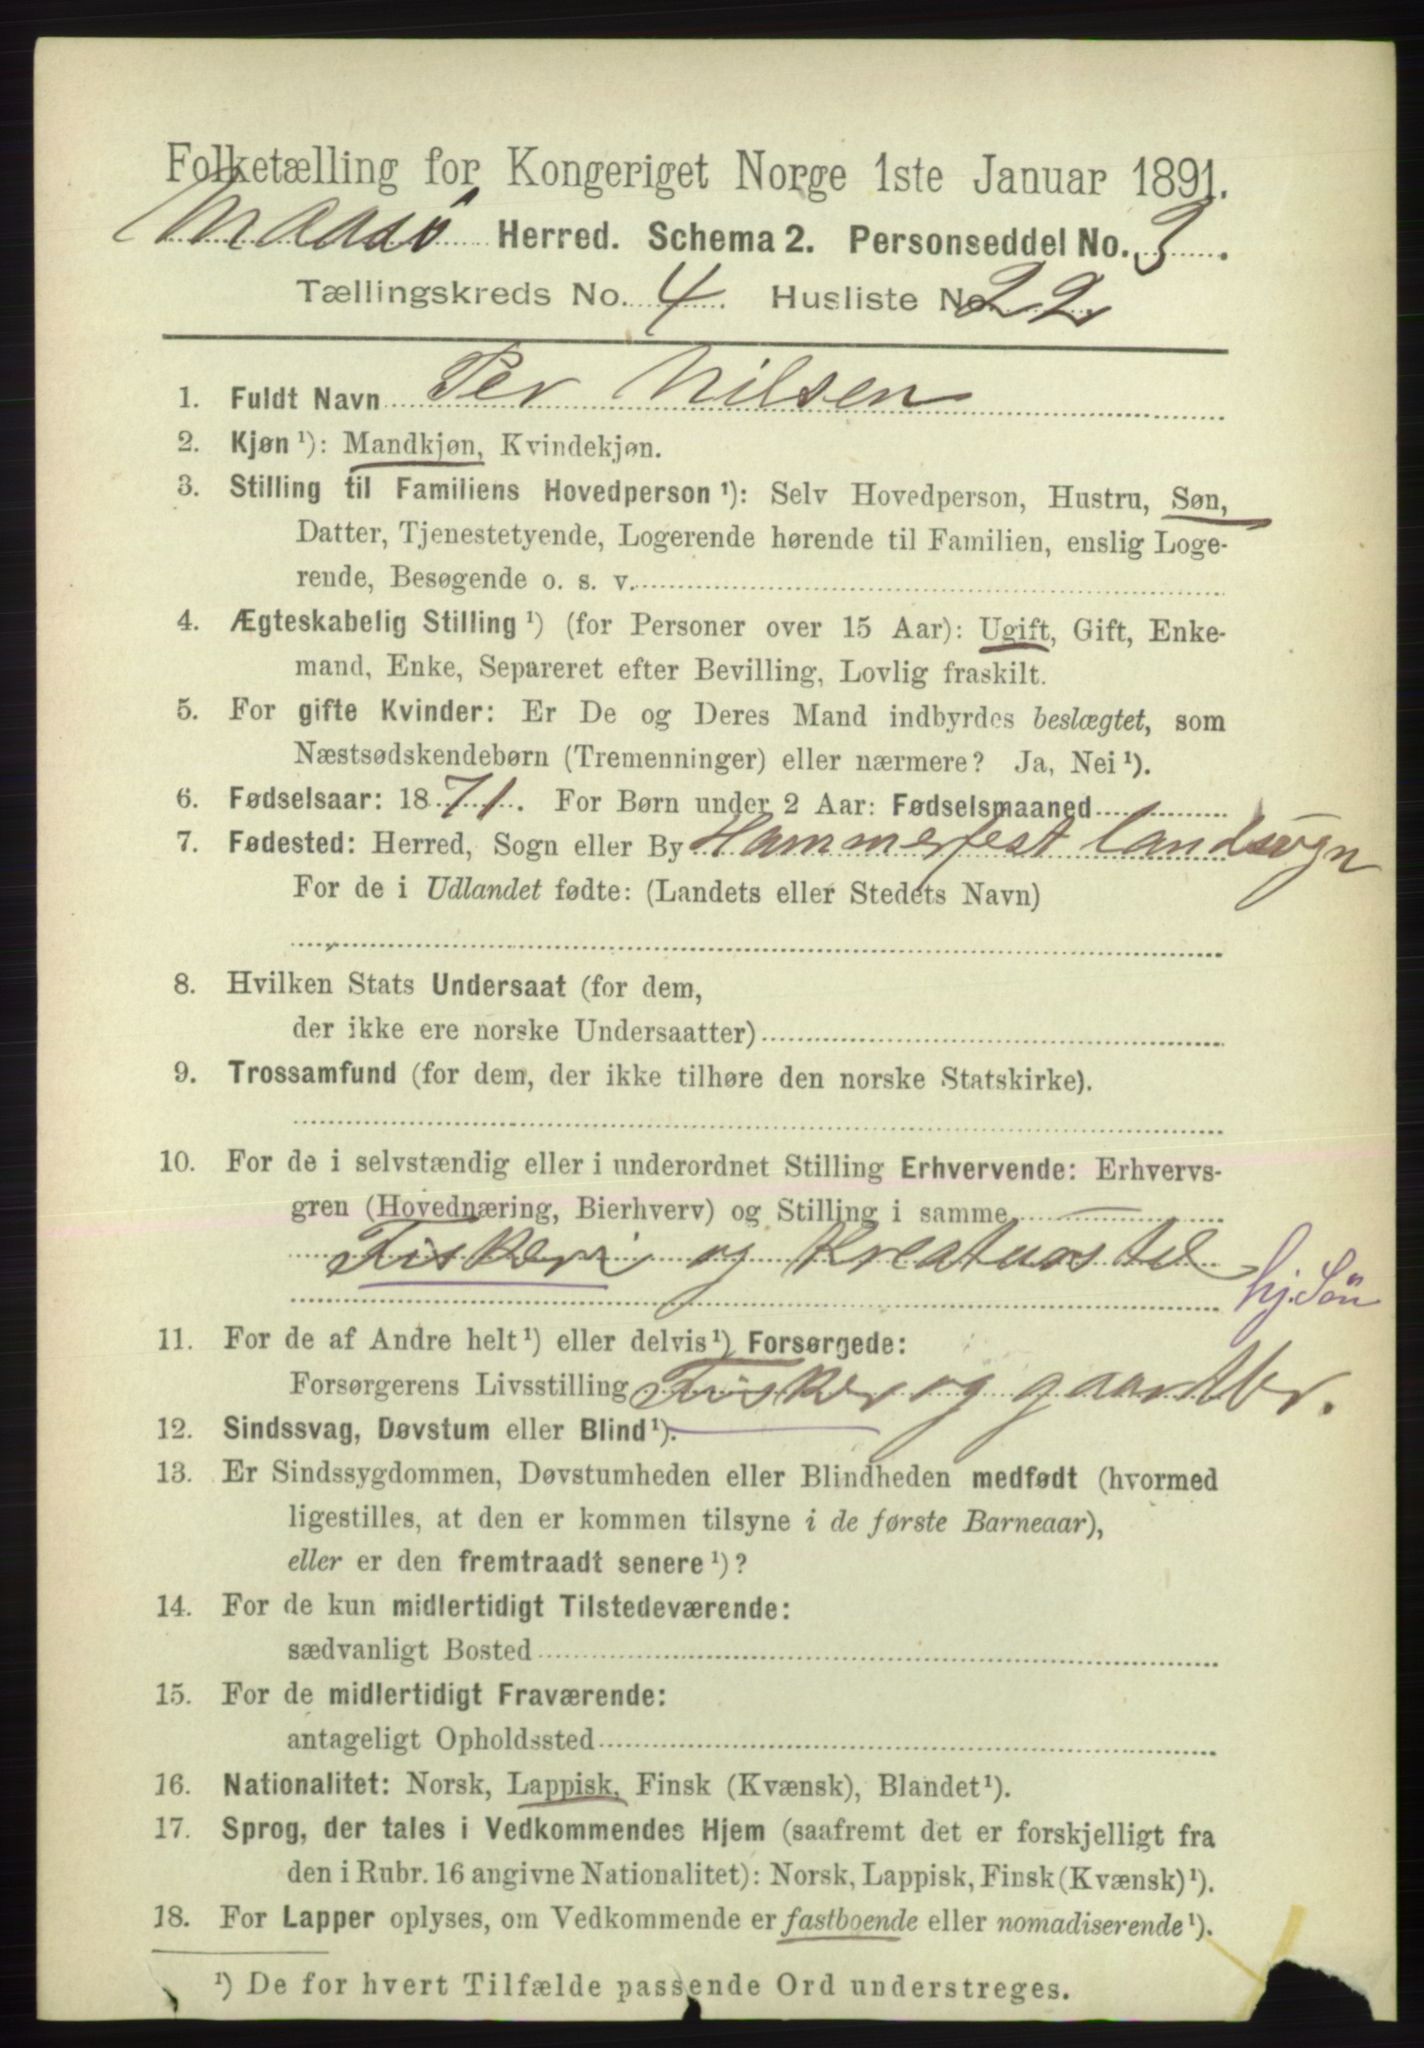 Folketælling for Kongeriget Norge 1ste Januar 1891.
Maasø Herred. Schema 2. Personseddel No. 3.
Tællingskreds No. 4. Husliste No. 22
1. Fuldt Navn Per Nilsen
2. Kjøn¹): Mandkjøn, Kvindekjøn.
3. Stilling til Familiens Hovedperson¹): Selv Hovedperson, Hustru, Søn,
Datter, Tjenestetyende, Logerende hørende til Familien, enslig Loge-
rende, Besøgende o. s. v.
4. Ægteskabelig Stilling¹) (for Personer over 15 Aar): Ugift, Gift, Enke-
mand, Enke, Separeret efter Bevilling, Lovlig fraskilt.
5. For gifte Kvinder: Er De og Deres Mand indbyrdes beslægtet, som
Næstsødskendebørn (Tremenninger) eller nærmere? Ja, Nei¹).
6. Fødselsaar: 1871. For Børn under 2 Aar: Fødselsmaaned
7. Fødested: Herred, Sogn eller By Hammerfest landsogn
For de i Udlandet fødte: (Landets eller Stedets Navn)
8. Hvilken Stats Undersaat (for dem,
der ikke ere norske Undersaatter)
9. Trossamfund (for dem, der ikke tilhøre den norske Statskirke).
10. For de i selvstændig eller i underordnet Stilling Erhvervende: Erhvervs-
gren (Hovednæring, Bierhverv) og Stilling i samme
Fiskeri og Kreaturstel
hj. Søn
11. For de af Andre helt¹) eller delvis¹) Forsørgede:
Forsørgerens Livsstilling Fisker og gaardbr.
12. Sindssvag, Døvstum eller Blind¹).
13. Er Sindssygdommen, Døvstumheden eller Blindheden medfødt (hvormed
ligestilles, at den er kommen tilsyne i de første Barneaar),
eller er den fremtraadt senere¹)?
14. For de kun midlertidigt Tilstedeværende:
sædvanligt Bosted
15. For de midlertidigt Fraværende:
antageligt Opholdssted
16. Nationalitet: Norsk, Lappisk, Finsk (Kvænsk), Blandet¹).
17. Sprog, der tales i Vedkommendes Hjem (saafremt det er forskjelligt fra
den i Rubr. 16 angivne Nationalitet): Norsk, Lappisk, Finsk (Kvænsk)¹).
18. For Lapper oplyses, om Vedkommende er fastboende eller nomadiserende¹).
¹) De for hvert Tilfælde passende Ord understreges.